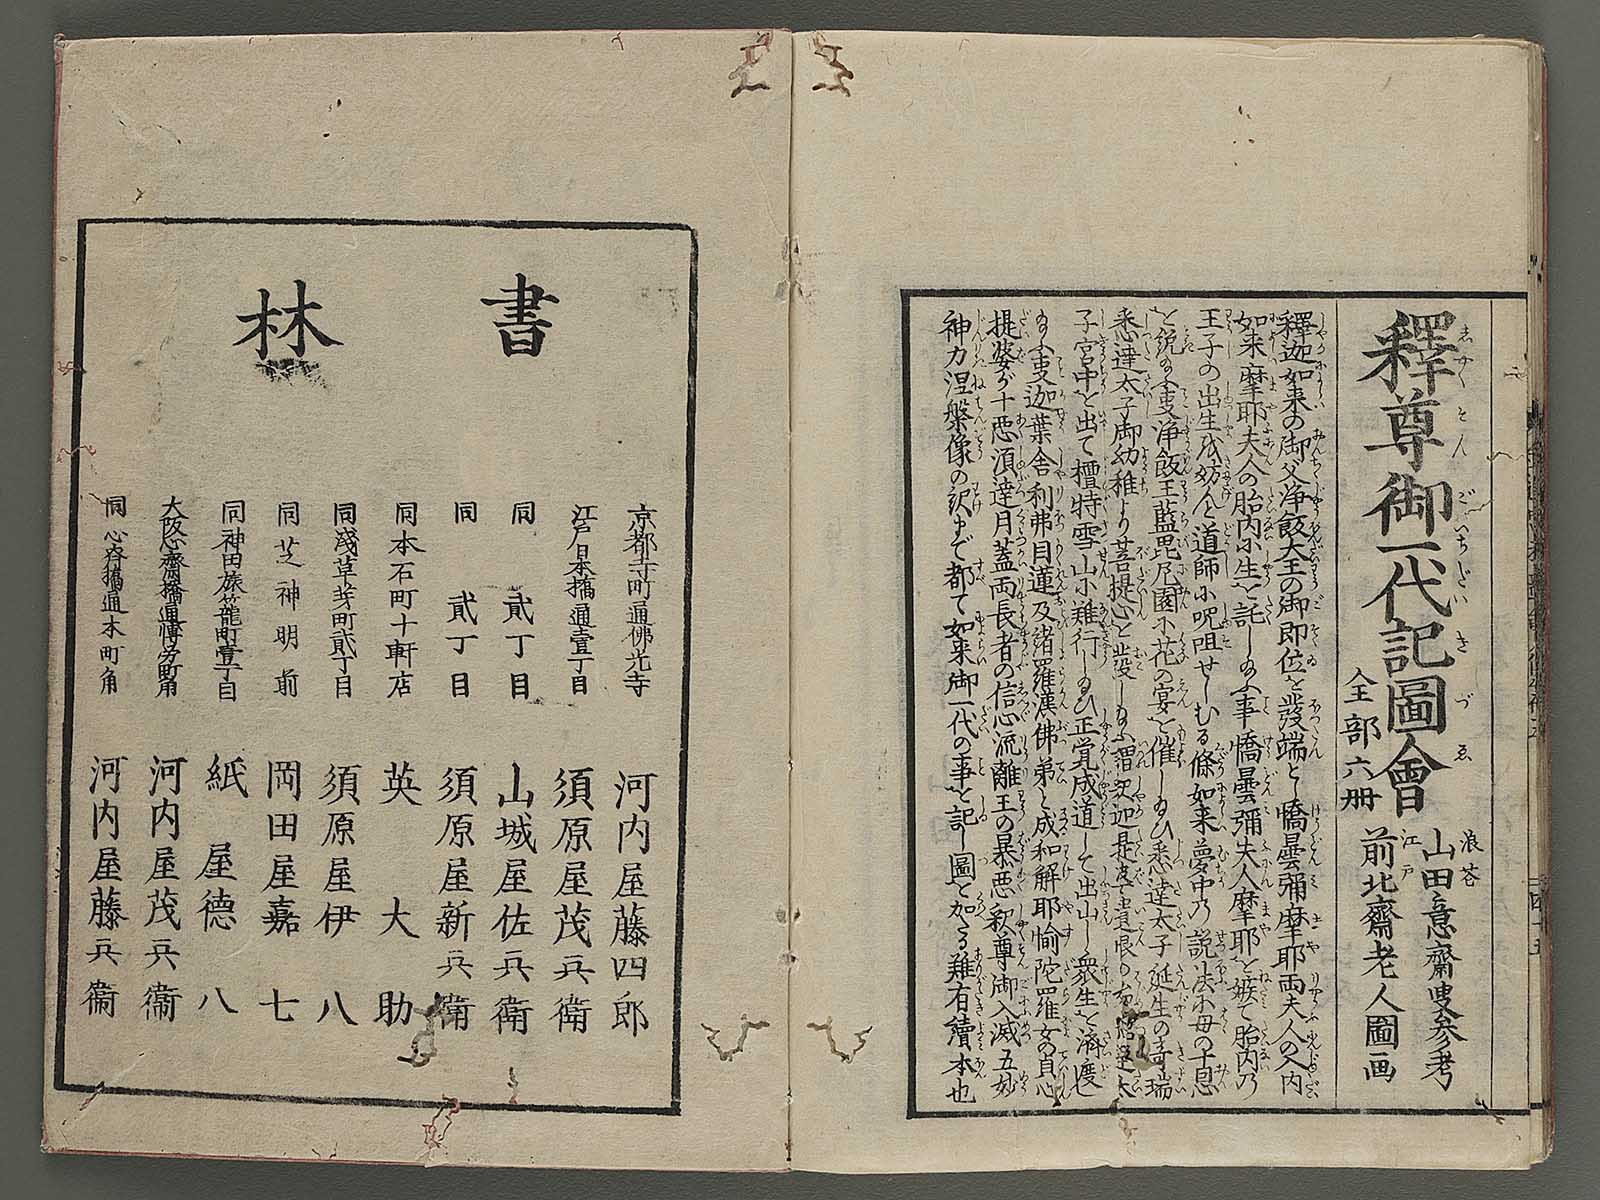 釋尊御一代記圖會
全部六冊
浪花 山田意齋叟参考
江戸 前北齋老人圖画
釋迦如来の御父浄飯大王の御即位を發端とし憍曇彌摩耶両夫人の入内
如来摩耶夫人の胎内に生を託し給ふ事憍曇彌夫人摩耶を嫉て胎内の
王子の出生を妨んと道師に呪咀せしむる條如来夢中の説法に母の十恩
を説給ふ事浄飯王藍毘尼園に花の宴を催し給ひ悉達太子誕生の奇瑞
悉達太子御幼稚より菩提心を發し給ふ
子宮中を出て檀特雪山に難行し給ひ正覚成道して出山し衆生を済度し
給ふ事迦葉舎利弗目蓮及諸羅漢佛弟と成和解耶愉陀羅女の貞心
提婆が十悪須達月蓋両長者の信心流離王の暴悪釈尊御入滅五妙
神力涅槃像の訳まで都て如来御一代の事を記し圖を加たる難有續本也
書林
京都寺町通佛光寺 河内屋藤四郎
江戸日本橋通壹丁目 須原屋茂兵衛
同 貳丁目 山城屋佐兵衛
同 貳丁目 須原屋新兵衛
同本石町十軒店 英大助
同淺草茅町貳丁目 須原屋伊八
同芝神明前 岡田屋嘉七
同神田旅籠町壹丁目 紙屋徳八
大阪心齋橋通博労町角 河内屋茂兵衞
同心斎橋通本町角 河内屋藤兵衞